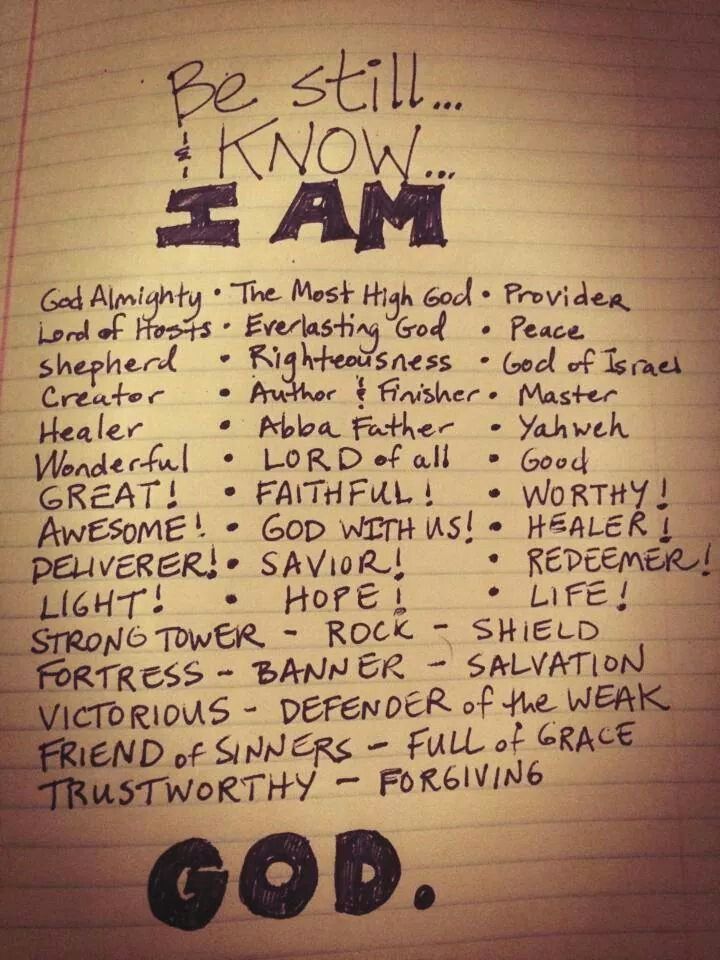 Be still...
& KNOW...
I AM
God Almighty • The Most High God • Provider
Lord of Hosts • Everlasting God • Peace
shepherd • Righteousness • God of Israel
Creator • Author & Finisher • Master
Healer • Abba Father • Yahweh
Wonderful • LORD of all • Good
GREAT! • FAITHFUL! • WORTHY!
AWESOME! • GOD WITH US! • HEALER!
DELIVERER! • SAVIOR! • REDEEMER!
LIGHT! • HOPE! • LIFE!
STRONG TOWER - ROCK - SHIELD
FORTRESS - BANNER - SALVATION
VICTORIOUS - DEFENDER of the WEAK
FRIEND of SINNERS - FULL of GRACE
TRUSTWORTHY - FORGIVING
GOD.